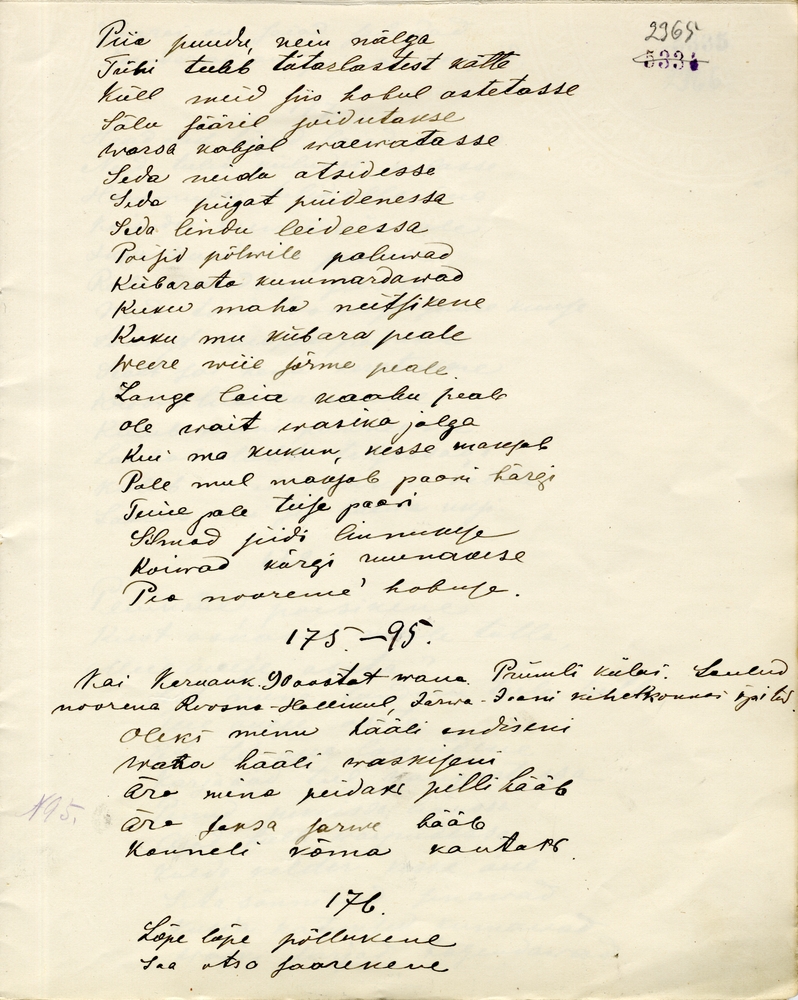 2365
5334
Piia puudu, nein nälga
Tühi tuleb tatarlastest kätte
Küll meid siis hobul astetasse
Sälu sääril sõidutakse
warsa kabjal waewatasse
Seda neidu otsidesse
Seda piigat püidenessa
Seda lindu leideessa
Poisid põlwile paluwad
Kübarata kummardawad
Kuku maha neitsikene
Kuku mu kübara peale
weere wiie sõrme peale.
Lange laia kaabu peale
ole wait wasika jalga
Kui ma kukun, kesse maksab
Pale mul maksab paari härgi
Teine pale teise paari
Silmad siidi linnukese
Koiwad kõrgi ruunakese
Pea noorema hobuse.
175.-95.
Kai Keruauk. 90 aastat wana. Pruuli külas. Laulud
noorena Roosna-Hallikul, Järwa-Jaani kihelkonnas õpitud.
Oleks minu hääli endiseni
wana hääli waskiseni
Ära mina peidaks pilli hääle
N95.
Ära jaksa sarwe hääle
Kanneli kõma kautaks.
176.
Lõpe lõpe põllukene
Saa otsa saarekene